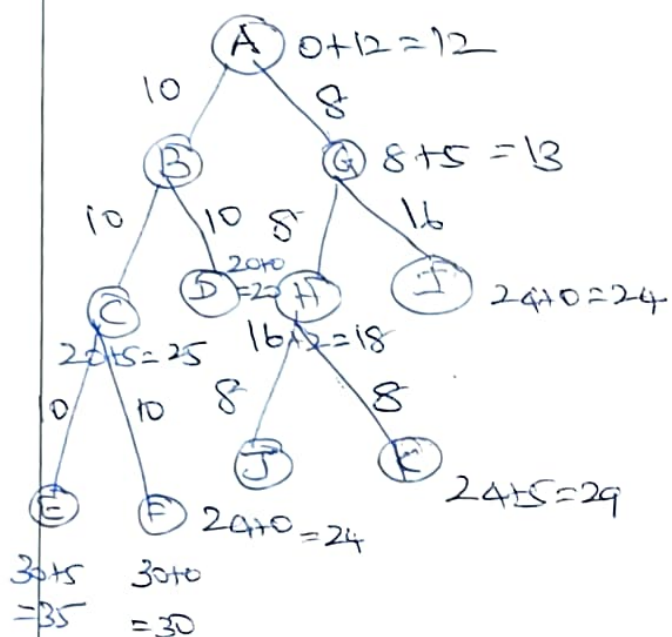 A 0+12=12
10 8
B G 8+5=13
10 10 8 16
C D 20+0 =20 H I 24+0=24
20+5=25 16+2=18
10 10 8 8
J K 24+5=29
E F 24+0=24
30+5 30+0
=35 =30